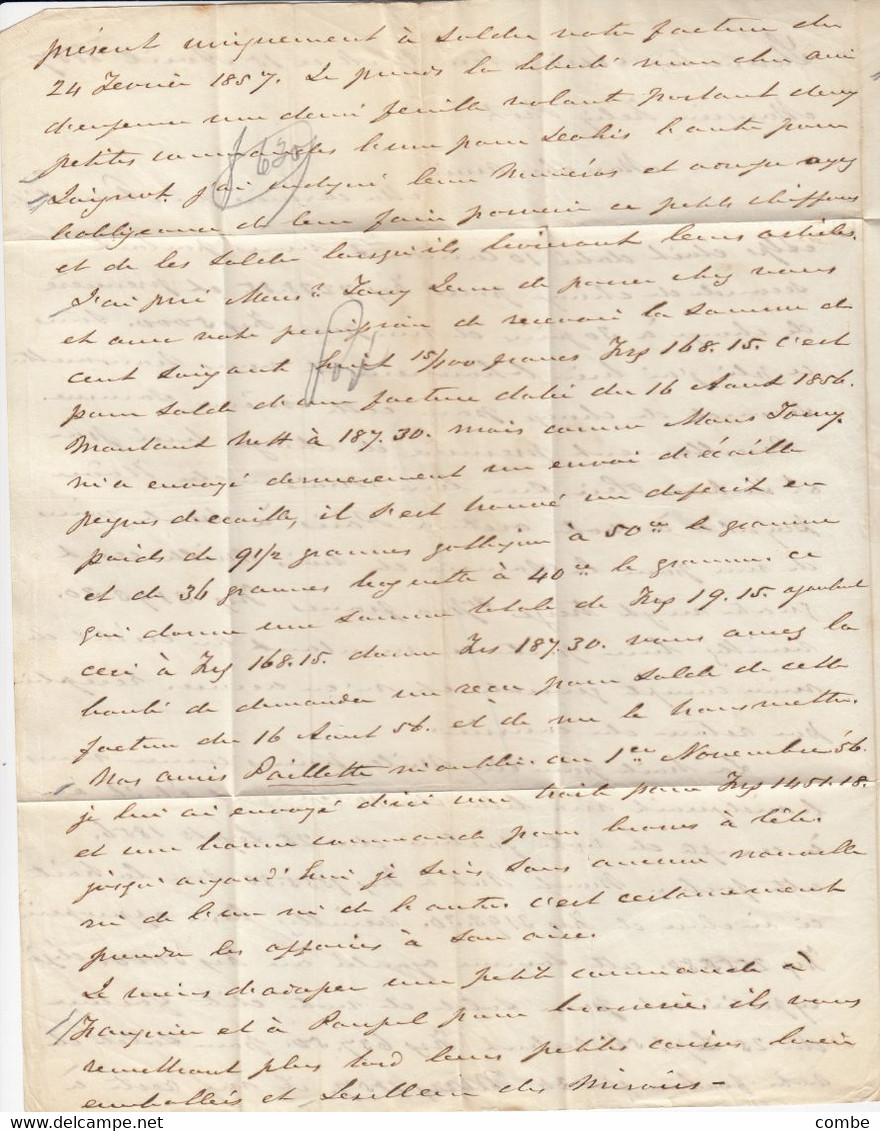 présent uniquement à solder votre facture du
24 Fevrier 1857. Je prends la liberté mon cher ami
une demi feuille volante portant deux
petites commandes l'une pour l'autre pour
620
J'ai indiqué leur Numéros et vous ayez
l'obligeance de leur faire parvenir ce petits chiffons
et de les solder lorsqu'ils livreront leurs articles.
J'ai prié Monsr Jamy de passer chez vous
et avec votre permission de recevoir la somme de
cent soixante huit 15/100 francs Frs 168.15. c'est
pour solde d'une facture datée du 16 Aout 1856.
Montant nett à 187.30. mais comme Mons Jamy
m'a envoyé dernierement un envoi d'écaille
peignes d'écaille, il s'est trouvé un deficit en
poids de 9 1/2 grammes à 50 ce le gramme
et de 36 grammes baguette à 40 ce le gramme ce
qui donne une somme totale de Frs 19.15. ajoutant
ceci à Frs 168.15. donne Frs 187.30. vous aurez la
bonté de demander un recu pour solde de cette
facture du 16 Aout 56. et de me le transmettre.
Nos amis Paillette m'oublie. au 1er Novembre 56.
je lui ai envoyé d'ici une traite pour Frs 1451.18.
et une bonne commande pour brosses à tête.
jusqu'aujourd'hui je suis sans aucune nouvelle
ni de l'une ni de l'autre. c'est certainement
prendre les affaires à son aise.
Je viens d'adresser une petite commande à
et à Poupel pour brosserie. ils vous
remettront plus tard leurs petites caisses bien
emballées et des Miroirs -
combe
delcampe.net